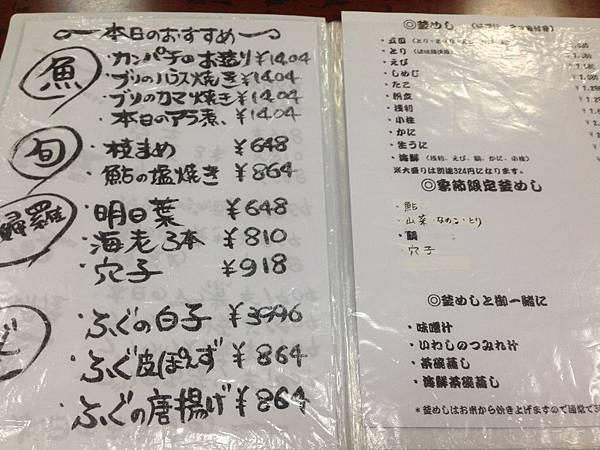 本日のおすすめ
魚
・カンパチのお造り ¥1404
・ブリのハラス焼き ¥1404
・ブリのカマ焼き ¥1404
・本日のアラ煮 ¥1404
旬
・枝まめ ¥648
・鮎の塩焼き ¥864
・明日葉 ¥648
・海老3本 ¥810
・穴子 ¥918
・ふぐの白子 ¥3996
・ふぐ皮ぽんず ¥864
・ふぐの唐揚げ ¥864
◎釜めし
・五目
・とり
・えび
・しめじ
・たこ
・帆立
・浅利
・小柱
・かに
・生うに
・海鮮 (浅利、えび、鯛、かに、小柱)
※大盛りは別途324円になります。
◎季節限定釜めし
・鮎
・山菜・なめこ・とり
・鯛
・穴子
◎釜めしと御一緒に
・味噌汁
・いわしのつみれ汁
・茶碗蒸し
・海鮮茶碗蒸し
*釜めしはお米から炊き上げますので